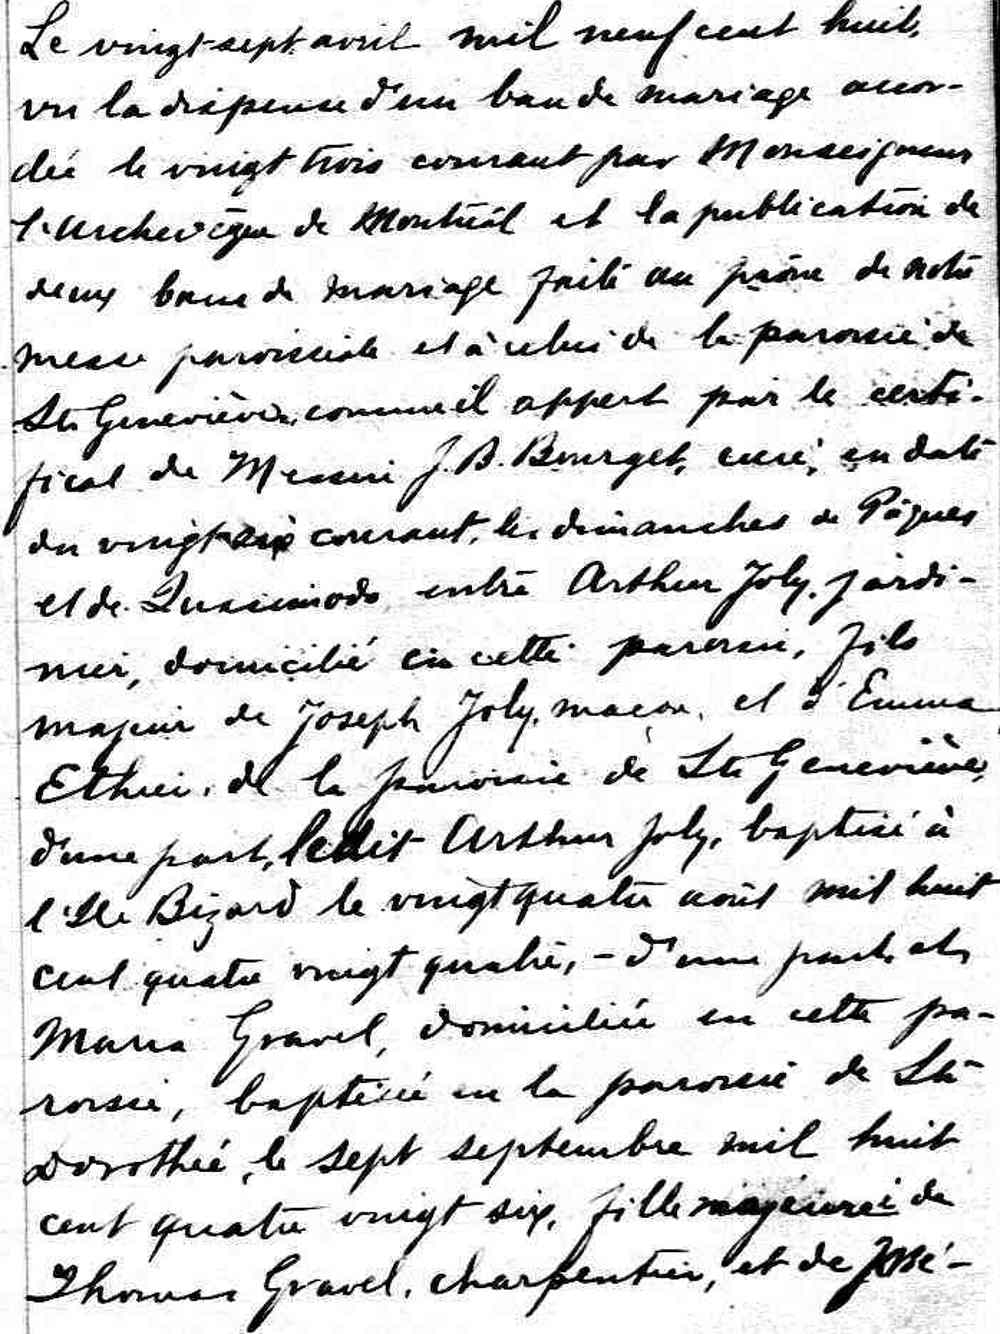 Le vingt-sept avril mil neuf cent huit,
vu la dispense d'un ban de mariage accor-
dée le vingt trois courant par Monseigneur
l'Archevêque de Montréal et la publication de
deux bans de mariage faite au prône de notre
messe paroissiale et à celui de la paroisse de
Ste Geneviève, comme il appert par le certi-
ficat de Messire J. B. Bourget, curé, en date
du vingt-six courant, les dimanches de Pâques
et de Quasimodo entre Arthur Joly, jardi-
nier, domicilié en cette paroisse, fils
majeur de Joseph Joly, maçon, et d'Emma
Ethier, de la paroisse de Ste Geneviève,
d'une part, ledit Arthur Joly, baptisé à
l'Ile Bizard le vingt quatre août mil huit
cent quatre vingt quatre, - d'une part et
Maria Gravel, domiciliée en cette pa-
roisse, baptisée en la paroisse de Ste
Dorothée, le sept septembre mil huit
cent quatre vingt six, fille majeure de
Thomas Gravel, charpentier, et de José-